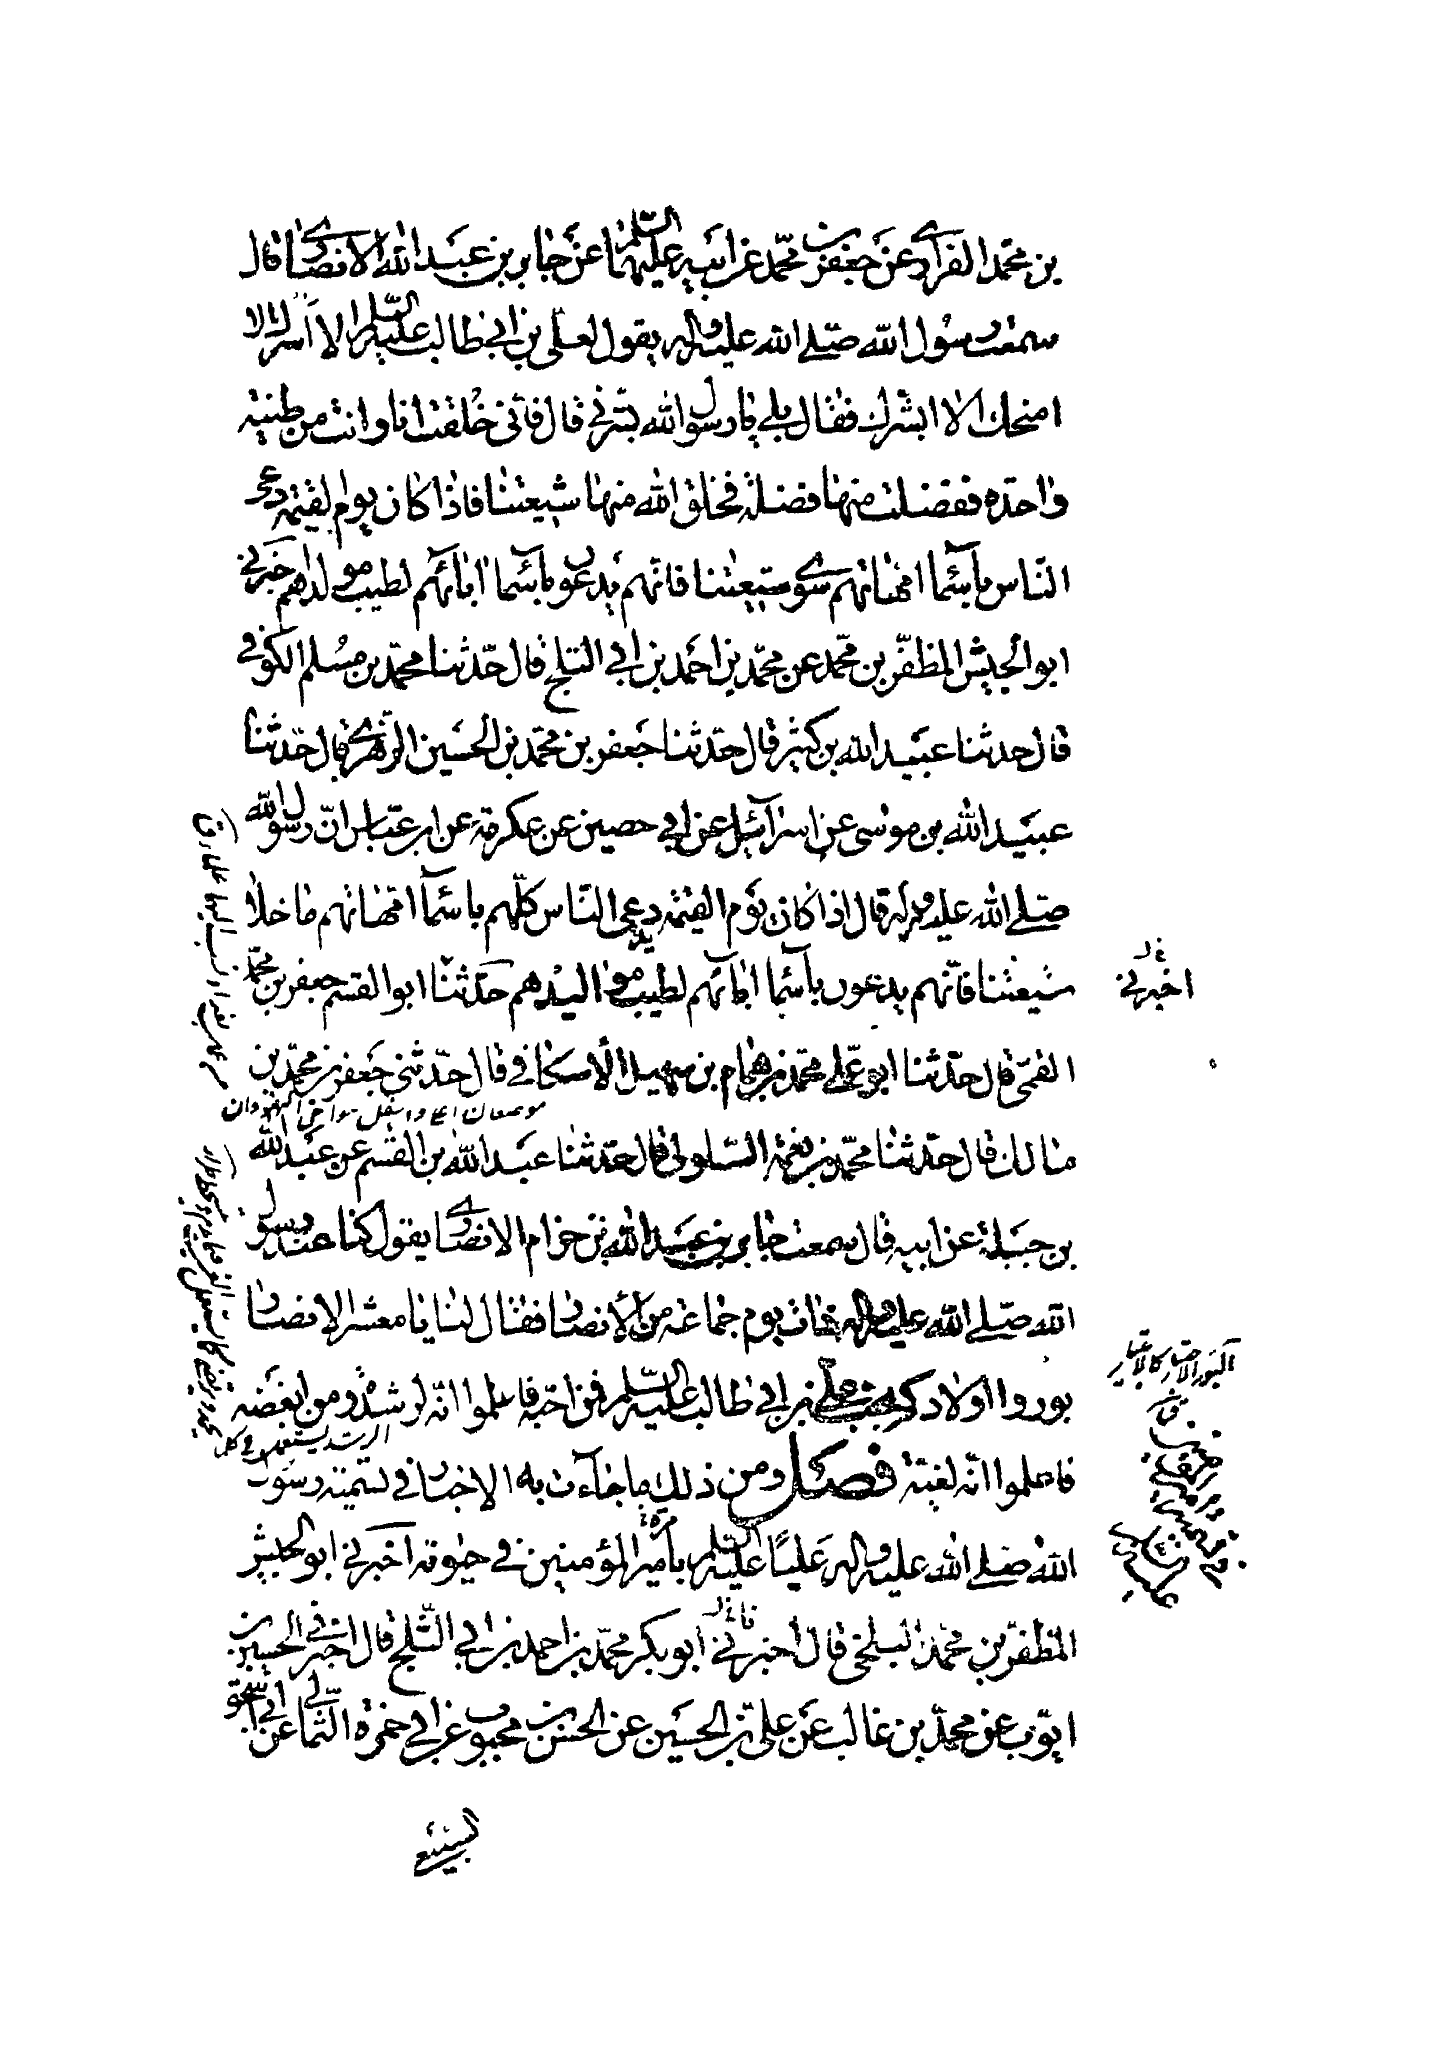 بن محمد الفزاري عن جعفر بن محمد عن ابيه عليهما السلم عن جابر بن عبد الله الانصاري قال
سمعت رسول الله صلى الله عليه واله يقول لعلي بن ابي طالب عليه السلم الا اسرك الا
امنحك الا ابشرك فقال بلى يا رسول الله بشرني قال فاني خلقت انا وانت من طينة
واحدة ففضلت منها فضلة فخلق الله منها شيعتنا فاذا كان يوم القيمة دعى
الناس باسماء امهاتهم سوى شيعتنا فانهم يدعون باسماء ابائهم لطيب مولدهم اخبرني
ابو الجيش المظفر بن محمد عن محمد بن احمد بن ابي الثلج قال حدثنا محمد بن مسلم الكوفي
قال حدثنا عبيد الله بن كثير قال حدثنا جعفر بن محمد بن الحسين الزهري قال حدثنا
عبيد الله بن موسى عن اسرائيل عن ابي حصين عن عكرمة عن ابن عباس ان رسول الله
صلى الله عليه واله قال اذا كان يوم القيمة يدعى الناس كلهم باسماء امهاتهم ما خلا
شيعتنا فانهم يدعون باسماء ابائهم لطيب مواليدهم حدثنا ابو القسم جعفر بن محمد
اخبرني
القمي قال حدثنا ابو علي محمد بن همام بن سهيل الاسكافي قال حدثني جعفر بن محمد بن
موضعان اعلى واسفل نواحي النهروان
مالك قال حدثنا محمد بن نعمة السلولي قال حدثنا عبد الله بن القسم عن عبد الله
بن جبلة عن ابيه قال سمعت جابر بن عبد الله بن حزام الانصاري يقول كنا عند رسول
الله صلى الله عليه واله ذات يوم جماعة من الانصار فقال لنا يا معشر الانصار
بوروا اولادكم بحب علي بن ابي طالب عليه السلم فمن احبه فاعلموا انه لرشدة ومن ابغضه
البور الاختبار كالابتيار
الرشد يستعمل في كل
فاعلموا انه لغية فصل ومن ذلك ما جاءت به الاخبار في تسميته رسول
الله صلى الله عليه واله عليا عليه السلم بامرة المؤمنين في حيوته اخبرني ابو الجيش
المظفر بن محمد البلخي قال اخبرني ابو بكر محمد بن احمد بن ابي الثلج قال اخبرني الحسين بن
ايوب عن محمد بن غالب عن علي بن الحسين عن الحسن بن محبوب عن ابي حمزة الثمالي عن ابي اسحق
السبيعي